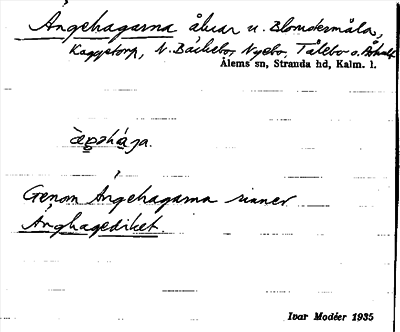 Ängehagarna åkrar u. Blomstermåla,
Kaggetorp, N. Bäckebo, Nyebo, Tålebo o.
Ålems sn, Stranda hd, Kalm. l.
Genom Ängehagarna rinner
Änghagediket.
Ivar Modéer 1935